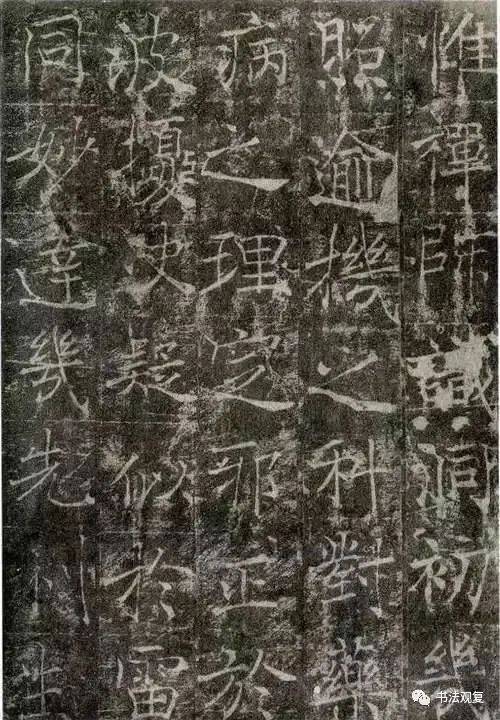 惟禪師識洞初
照逾機之科對藥
病之理定邪正於
波擾決疑似於雷
同妙達幾先利生
书法观复